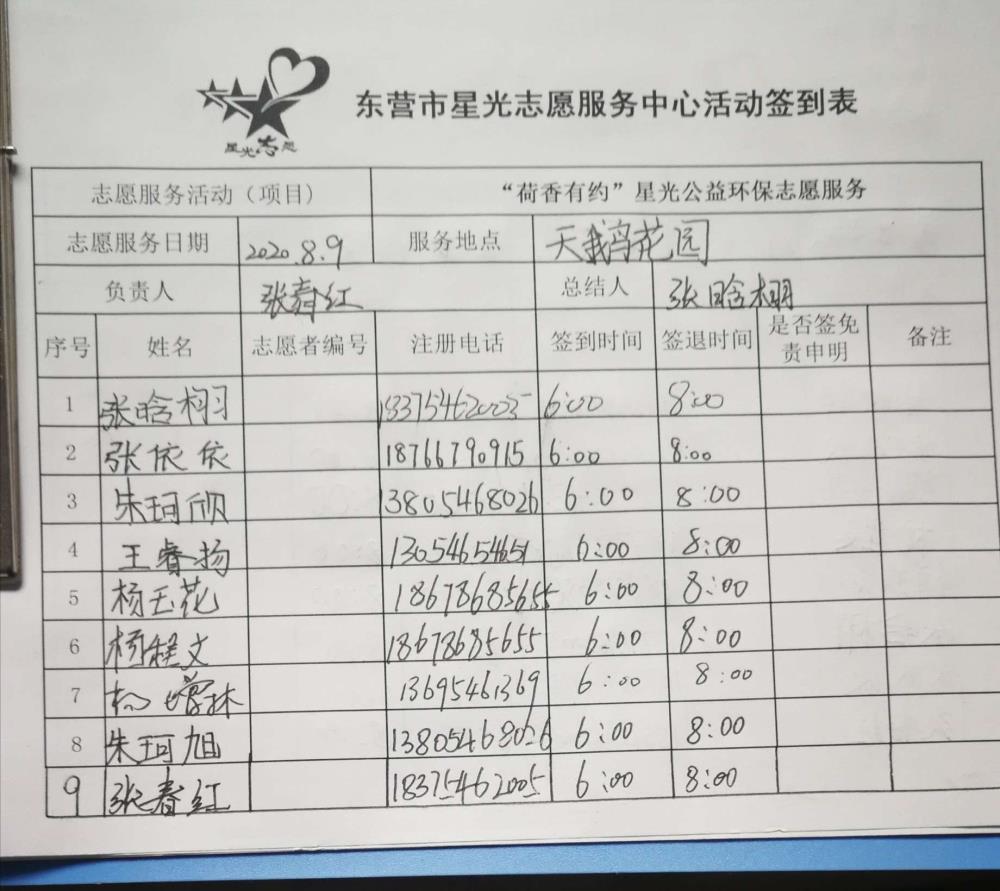 星光志愿
东营市星光志愿服务中心活动签到表
志愿服务活动（项目） “荷香有约”星光公益环保志愿服务
志愿服务日期 2020.8.9 服务地点 天鹅湾花园
负责人 张春红 总结人 张晗栩
序号 姓名 志愿者编号 注册电话 签到时间 签退时间 是否签免责申明 备注
1 张晗栩 18375462005 6:00 8:00
2 张依依 18766790915 6:00 8:00
3 朱珂欣 13805468026 6:00 8:00
4 王睿扬 13054654651 6:00 8:00
5 杨玉花 18678685655 6:00 8:00
6 杨程文 18678685655 6:00 8:00
7 13695461369 6:00 8:00
8 朱珂旭 13805468026 6:00 8:00
9 张春红 18375462005 6:00 8:00